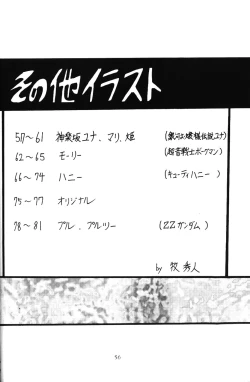 その他イラスト
57～61 神楽坂ユナ、マリ、姫 (銀河お嬢様伝説ユナ)
62～65 モーリー (超音戦士ボーグマン)
66～74 ハニー (キューティハニー)
75～77 オリジナル
78～81 プル、プルツー (ZZガンダム)
by 牧秀人
56